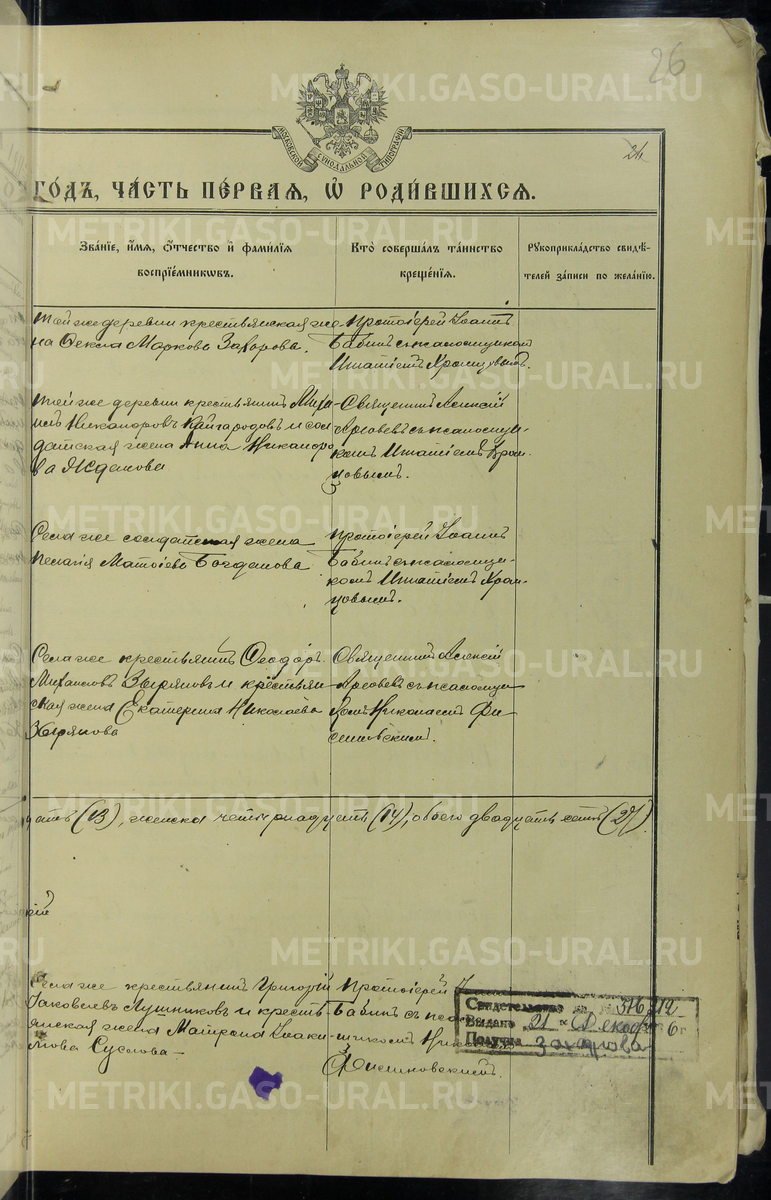 METRIKI.GASO-URAL.RU
26
МОСКОВСКОЙ СѴНОДАЛЬНОЙ ТИПОГРАФІИ
26
ГО́ДЪ, ЧА́СТЬ ПЕ́РВАЯ, Ѡ҆ РОДИ́ВШИХСЯ.
Зва́нїе, и҆́мя, ѻ҆́тчество и҆ фами́лїя
воспрїе́мникѡвъ.
Кто̀ соверша́лъ та́инство
креще́нїя.
Рꙋкоприкла́дство свидѣ́-
телей за́писи по жела́нїю.
той же деревни крестьянская же-
на Фекла Маркова Захарова.
Протоіерей Іоаннъ
Бабинъ съ псаломщикомъ
Игнатіемъ Храмцовымъ.
той же деревни крестьянинъ Миха-
илъ Никаноровъ Кайгородовъ и сол-
датская жена Анна Никаноро-
ва Жданова
Священникъ Алексій
съ псаломщи-
комъ Игнатіемъ Храм-
цовымъ.
Села же солдатская жена
Пелагія Матѳіева Богданова
Протоіерей Іоаннъ
Бабинъ съ псаломщи-
комъ Игнатіемъ Храм-
цовымъ.
Села же крестьянинъ Ѳеодоръ
Михаиловъ Зыряновъ и крестьян-
ская жена Екатерина Николаева
Зырянова
Священникъ Алексій
съ псаломщи-
комъ Николаемъ Фи-
липовскимъ.
дать (13), женска четырнадцать (14), обоего двадцать семь (27).
кій
Села же крестьянинъ Григорій
Іаковлевъ Лушниковъ и кресть-
янская жена Матрона Іоаки-
мова Суслова
Протоіерей І
Бабинъ съ псало-
мщикомъ Нико
Филиповскимъ.
Свидетельство за № 376212
Выдано 21 Декабр 6 г
Получил Захарова